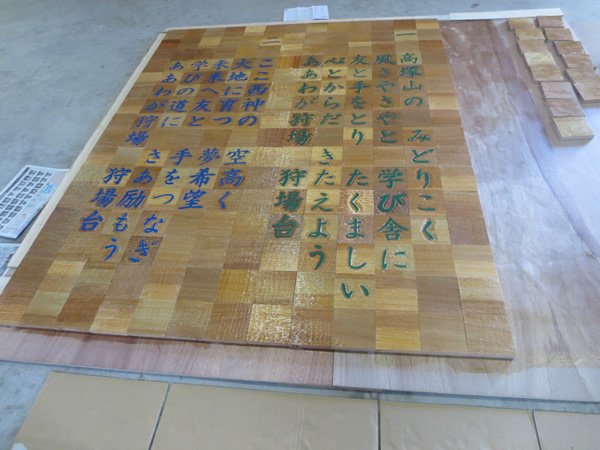 一
高塚山の みどりこく
風さやさやと 学び舎に
友と手をとり たくましい
心とからだ きたえよう
ああわが狩場 狩場台
二
ここ西神の 空高く
大地に育つ 夢希望
未来へ友と 手をつなぎ
学びの道に さあ励もう
ああわが狩場 狩場台